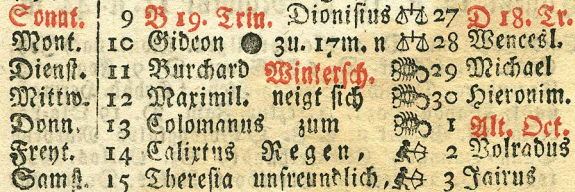 Sonnt. 9 B 19. Trin. Dionisius ♎ 27 D 18. Tr.
Mont. 10 Gideon ● 3u. 17m. n ♎ 28 Wencesl.
Dienst. 11 Burchard Wintersch. ♏ 29 Michael
Mittw. 12 Maximil. neigt sich ♏ 30 Hieronim.
Donn. 13 Colomanus zum ♏ 1 Alt. Oct.
Freyt. 14 Calixtus Regen, ♐ 2 Volradus
Samst. 15 Theresia unfreundlich, ♐ 3 Jairus